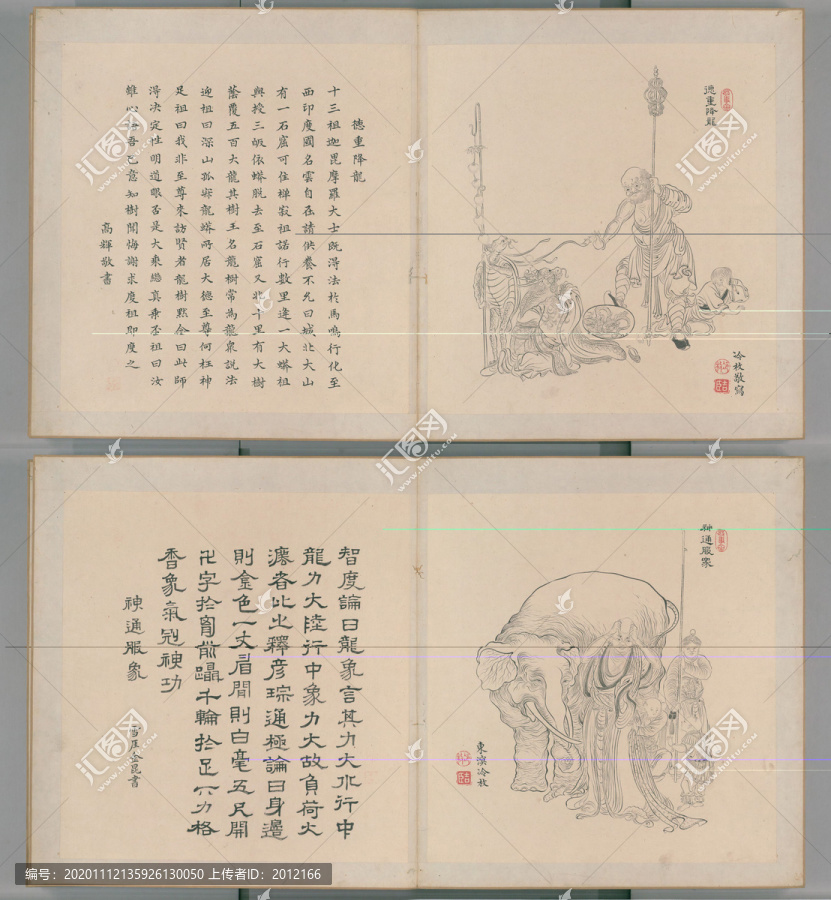 德重降龍
冷枚敬寫
德重降龍
十三祖迦毘摩羅大士既得法於馬鳴行化至
西印度國名雲自在請供養不允曰城北大山
有一石窟可住禪寂祖諾行數里逢一大蟒祖
與授三皈依蟒脫去至石窟又北十里有大樹
蔭覆五百大龍其樹王名龍樹常為龍眾說法
迎祖曰深山孤寂龍蟒所居大德至尊何枉神
足祖曰我非至尊來訪賢者龍樹默念曰此師
得決定性明道眼否是大乘繼真乘否祖曰汝
雖心語吾已意知樹聞悔謝求度祖即度之
高輝敬書
神通服象
東溟冷枚
智度論曰龍象言其力大水行中
龍力大陸行中象力大故負荷大
者比之釋彥琮通極論曰身邊
則金色一丈眉間則白毫五尺開
卍字於胸前躡千輪於足下力格
香象氣冠神功
神通服象
雪厓金昆書
汇图网
www.huitu.com
编号：20201112135926130050 上传者ID：2012166